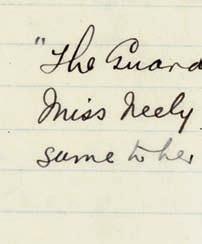 "The Guard
Miss Neely
same to her